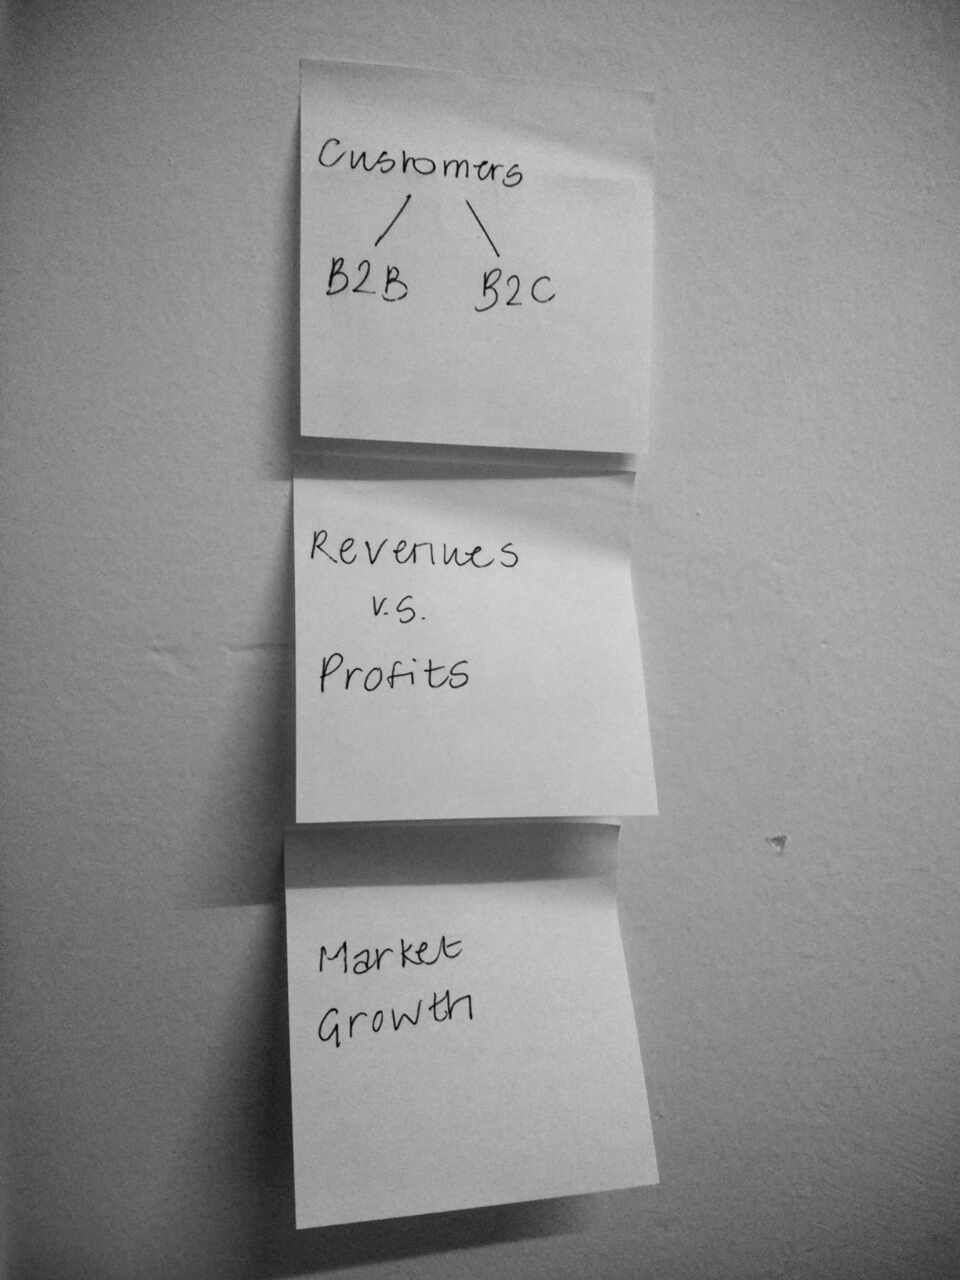 Customers
B2B B2C
Revenues
v.s.
Profits
Market
Growth